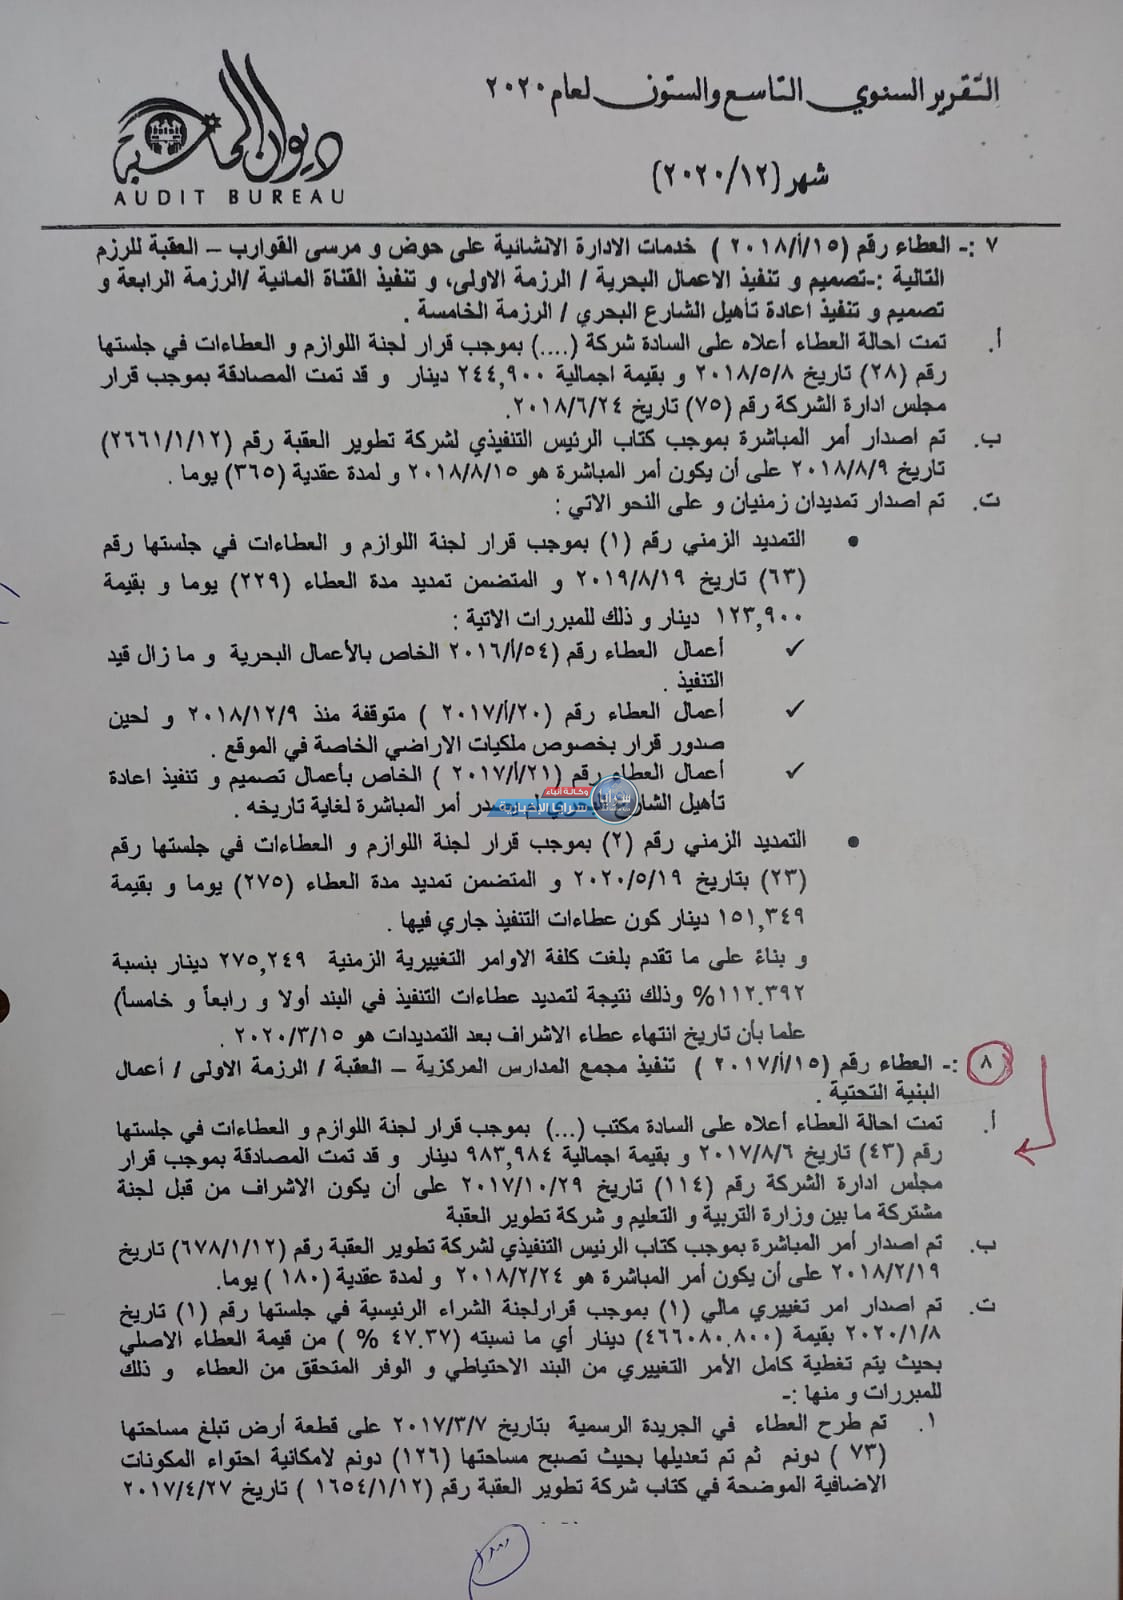 التقرير السنوي التاسع والستون لعام ٢٠٢٠
ديوان المحاسبة
AUDIT BUREAU
شهر (٢٠٢٠/١٢)
٧ :- العطاء رقم (١٥/أ/٢٠١٨ ) خدمات الادارة الانشائية على حوض و مرسى القوارب – العقبة للرزم
التالية :-تصميم و تنفيذ الاعمال البحرية / الرزمة الاولى، و تنفيذ القناة المائية /الرزمة الرابعة و
تصميم و تنفيذ اعادة تأهيل الشارع البحري / الرزمة الخامسة .
أ. تمت احالة العطاء أعلاه على السادة شركة (....) بموجب قرار لجنة اللوازم و العطاءات في جلستها
رقم (٢٨) تاريخ ٢٠١٨/٥/٨ و بقيمة اجمالية ٢٤٤,٩٠٠ دينار و قد تمت المصادقة بموجب قرار
مجلس ادارة الشركة رقم (٧٥) تاريخ ٢٠١٨/٦/٢٤.
ب. تم اصدار أمر المباشرة بموجب كتاب الرئيس التنفيذي لشركة تطوير العقبة رقم (٢٦٦١/١/١٢)
تاريخ ٢٠١٨/٨/٩ على أن يكون أمر المباشرة هو ٢٠١٨/٨/١٥ و لمدة عقدية (٣٦٥) يوما .
ت. تم اصدار تمديدان زمنيان و على النحو الاتي :
• التمديد الزمني رقم (١) بموجب قرار لجنة اللوازم و العطاءات في جلستها رقم
(٦٣) تاريخ ٢٠١٩/٨/١٩ و المتضمن تمديد مدة العطاء (٢٢٩) يوما و بقيمة
١٢٣,٩٠٠ دينار و ذلك للمبررات الاتية :
✓ أعمال العطاء رقم (٥٤/أ/٢٠١٦ الخاص بالأعمال البحرية و ما زال قيد
التنفيذ .
✓ أعمال العطاء رقم (٢٠/أ/٢٠١٧ ) متوقفة منذ ٢٠١٨/١٢/٩ و لحين
صدور قرار بخصوص ملكيات الاراضي الخاصة في الموقع .
✓ أعمال العطاء رقم (٢١/أ/٢٠١٧ ) الخاص بأعمال تصميم و تنفيذ اعادة
تأهيل الشارع البحري لم يصدر أمر المباشرة لغاية تاريخه .
وكالة أنباء
سرايا الإخبارية
سرايا
• التمديد الزمني رقم (٢) بموجب قرار لجنة اللوازم و العطاءات في جلستها رقم
(٢٣) بتاريخ ٢٠٢٠/٥/١٩ و المتضمن تمديد مدة العطاء (٢٧٥) يوما و بقيمة
١٥١,٣٤٩ دينار كون عطاءات التنفيذ جاري فيها .
و بناءً على ما تقدم بلغت كلفة الاوامر التغييرية الزمنية ٢٧٥,٢٤٩ دينار بنسبة
١١٢.٣٩٢% وذلك نتيجة لتمديد عطاءات التنفيذ في البند أولا و رابعاً و خامساً)
علما بأن تاريخ انتهاء عطاء الاشراف بعد التمديدات هو ٢٠٢٠/٣/١٥ .
٨ :- العطاء رقم (١٥/أ/٢٠١٧ ) تنفيذ مجمع المدارس المركزية – العقبة / الرزمة الاولى / أعمال
البنية التحتية .
أ. تمت احالة العطاء أعلاه على السادة مكتب (...) بموجب قرار لجنة اللوازم و العطاءات في جلستها
رقم (٤٣) تاريخ ٢٠١٧/٨/٦ و بقيمة اجمالية ٩٨٣,٩٨٤ دينار و قد تمت المصادقة بموجب قرار
مجلس ادارة الشركة رقم (١١٤) تاريخ ٢٠١٧/١٠/٢٩ على أن يكون الاشراف من قبل لجنة
مشتركة ما بين وزارة التربية و التعليم و شركة تطوير العقبة
ب. تم اصدار أمر المباشرة بموجب كتاب الرئيس التنفيذي لشركة تطوير العقبة رقم (٦٧٨/١/١٢) تاريخ
٢٠١٨/٢/١٩ على أن يكون أمر المباشرة هو ٢٠١٨/٢/٢٤ و لمدة عقدية (١٨٠ ) يوما.
ت. تم اصدار امر تغييري مالي (١) بموجب قرارلجنة الشراء الرئيسية في جلستها رقم (١) تاريخ
٢٠٢٠/١/٨ بقيمة (٤٦٦٠٨٠.٨٠٠) دينار أي ما نسبته (٤٧.٣٧ % ) من قيمة العطاء الاصلي
بحيث يتم تغطية كامل الأمر التغييري من البند الاحتياطي و الوفر المتحقق من العطاء و ذلك
للمبررات و منها :-
١. تم طرح العطاء في الجريدة الرسمية بتاريخ ٢٠١٧/٣/٧ على قطعة أرض تبلغ مساحتها
(٧٣ ) دونم ثم تم تعديلها بحيث تصبح مساحتها (١٢٦) دونم لامكانية احتواء المكونات
الاضافية الموضحة في كتاب شركة تطوير العقبة رقم (١٦٥٤/١/١٢ ) تاريخ ٢٠١٧/٤/٢٧